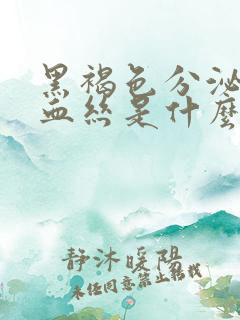 黑褐色分泌
血丝是什么
静沐暖阳
未经同意禁止转载